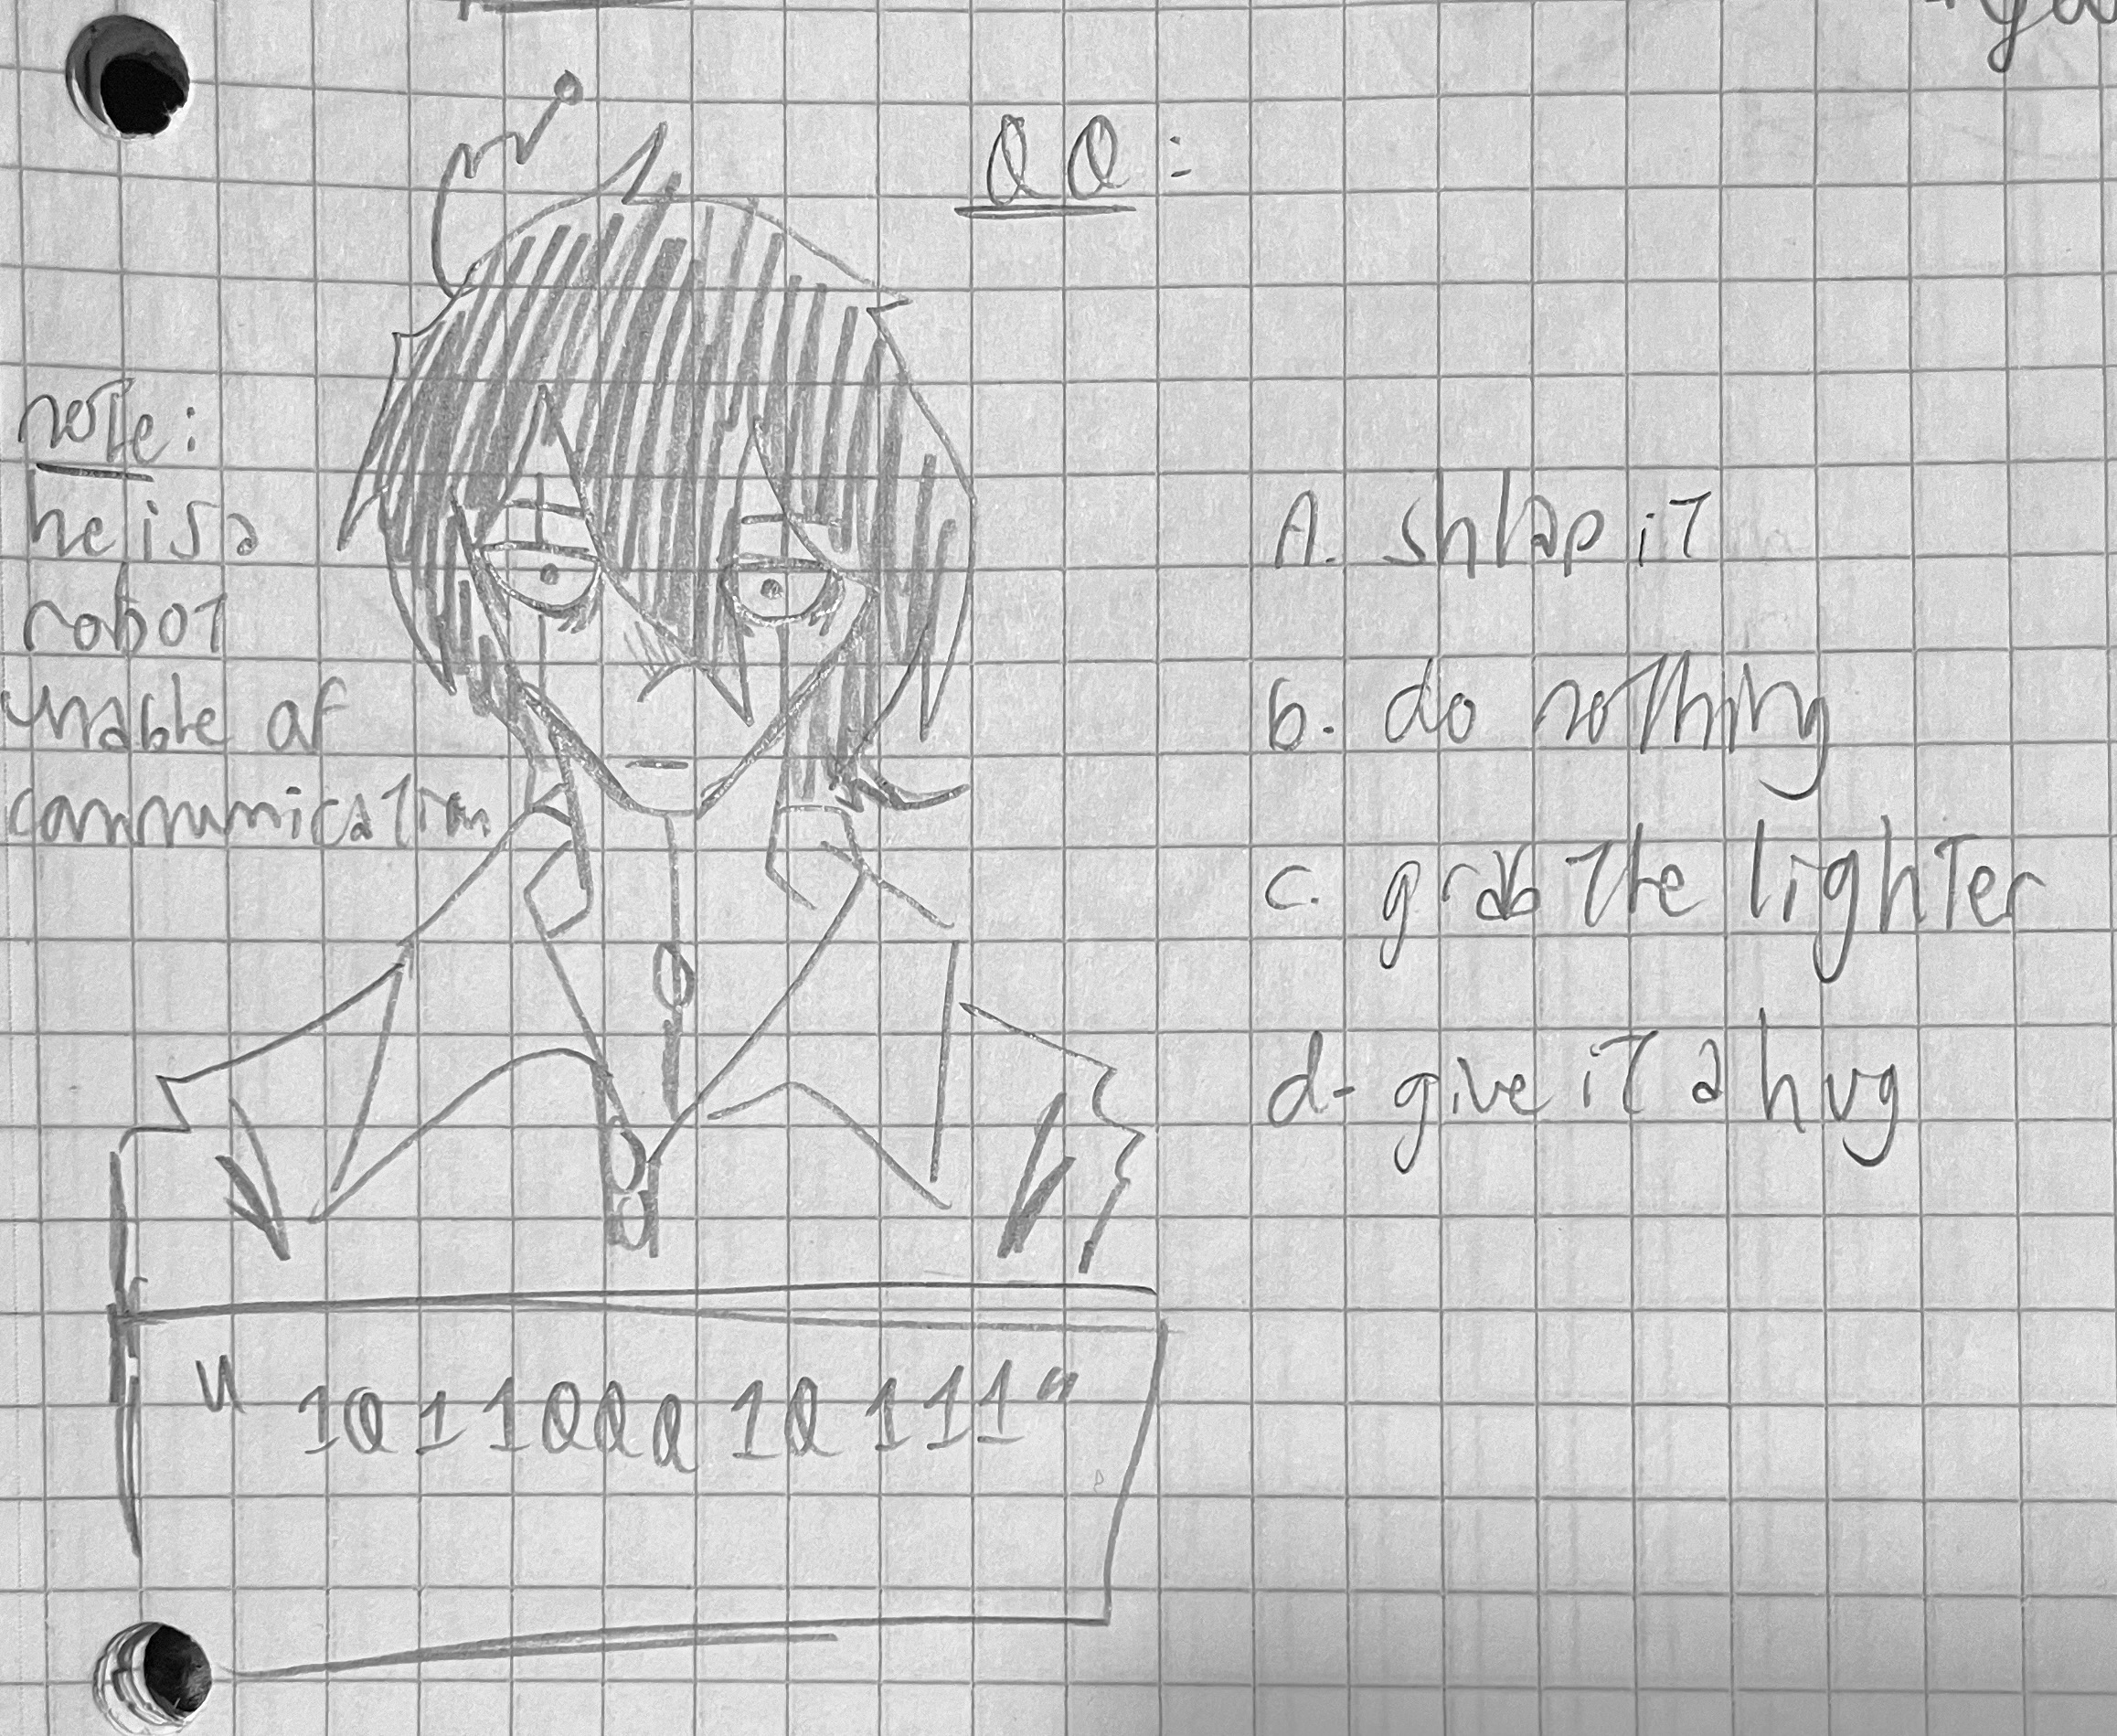 QQ:
note:
he is a
robot
unable of
communication
A. shlap it
b. do nothing
c. grab the lighter
d- give it a hug
"101100010111"